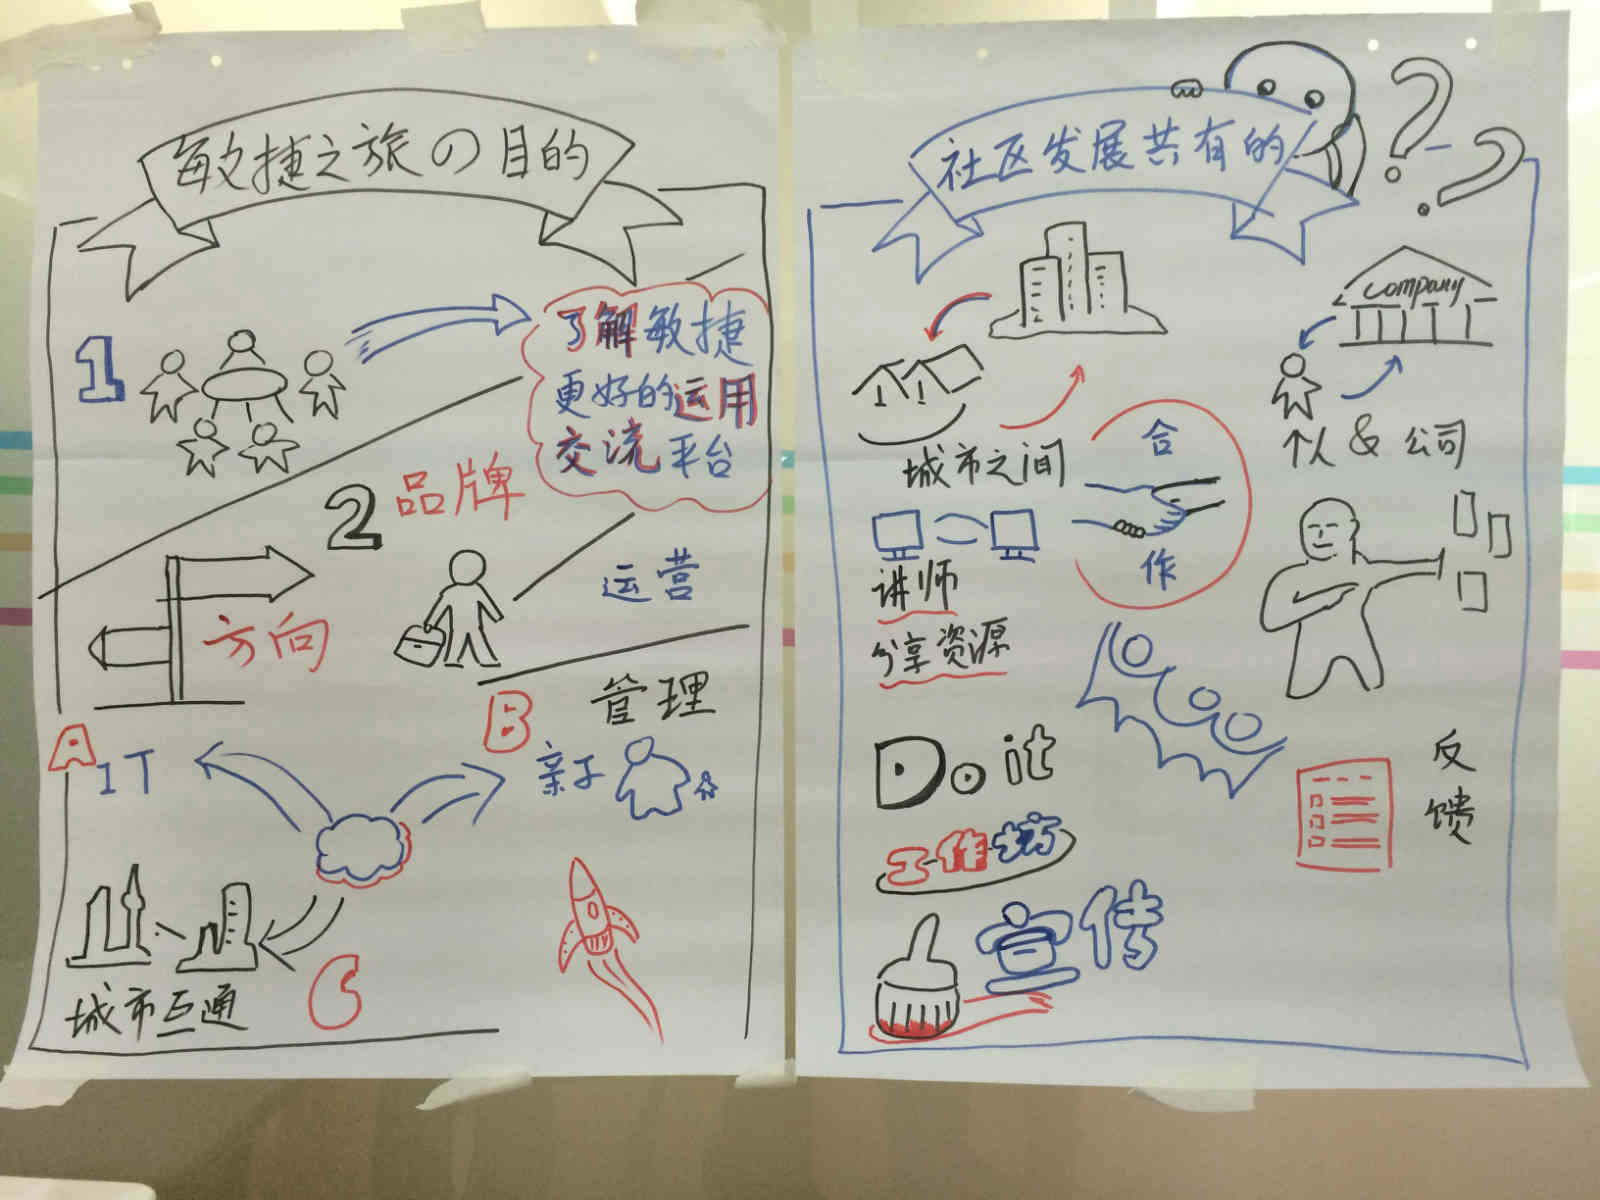 敏捷之旅の目的
1
了解敏捷
更好的运用
交流平台
2
品牌
方向
运营
B
管理
A
IT
亲子
城市互通
C
社区发展共有的
??
company
个人 & 公司
城市之间
合
作
讲师
分享资源
Do it
工作坊
反
馈
宣传